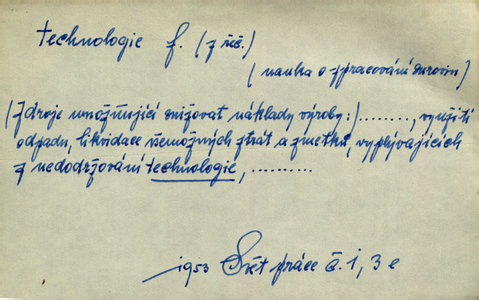 technologie f. (z řeč.)
(nauka o zpracování surovin)
(Zdroje umožňující snižovat náklady výroby:)........., využití
odpadu, likvidace všemožných ztrát a zmetků, vyplývajících
z nedodržování technologie, ..........
1953 Svět práce č. 1, 3 e